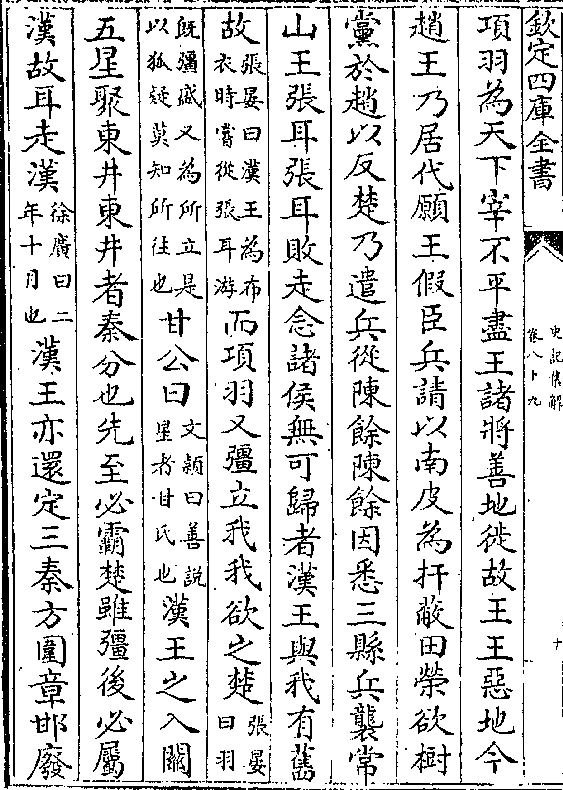 欽定四庫全書
史記集解
卷八十九
十
項羽為天下宰不平盡王諸將善地徙故王王惡地今
趙王乃居代願王假臣兵請以南皮為扞蔽田榮欲樹
黨於趙以反楚乃遣兵從陳餘陳餘因悉三縣兵襲常
山王張耳張耳敗走念諸侯無可歸者漢王與我有舊
故張晏曰漢王為布衣時嘗從張耳游而項羽又彊立我我欲之楚張晏曰羽
既彊盛又為所立是以狐疑莫知所往也甘公曰文穎曰善說星者甘氏也漢王之入關
五星聚東井東井者秦分也先至必霸楚雖彊後必屬
漢故耳走漢徐廣曰二年十月也漢王亦還定三秦方圍章邯廢